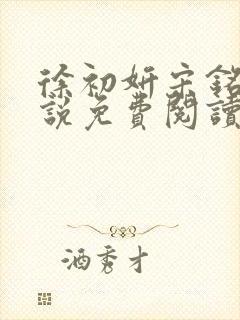 徐初妍宋銘
說免費閱讀
酒秀才